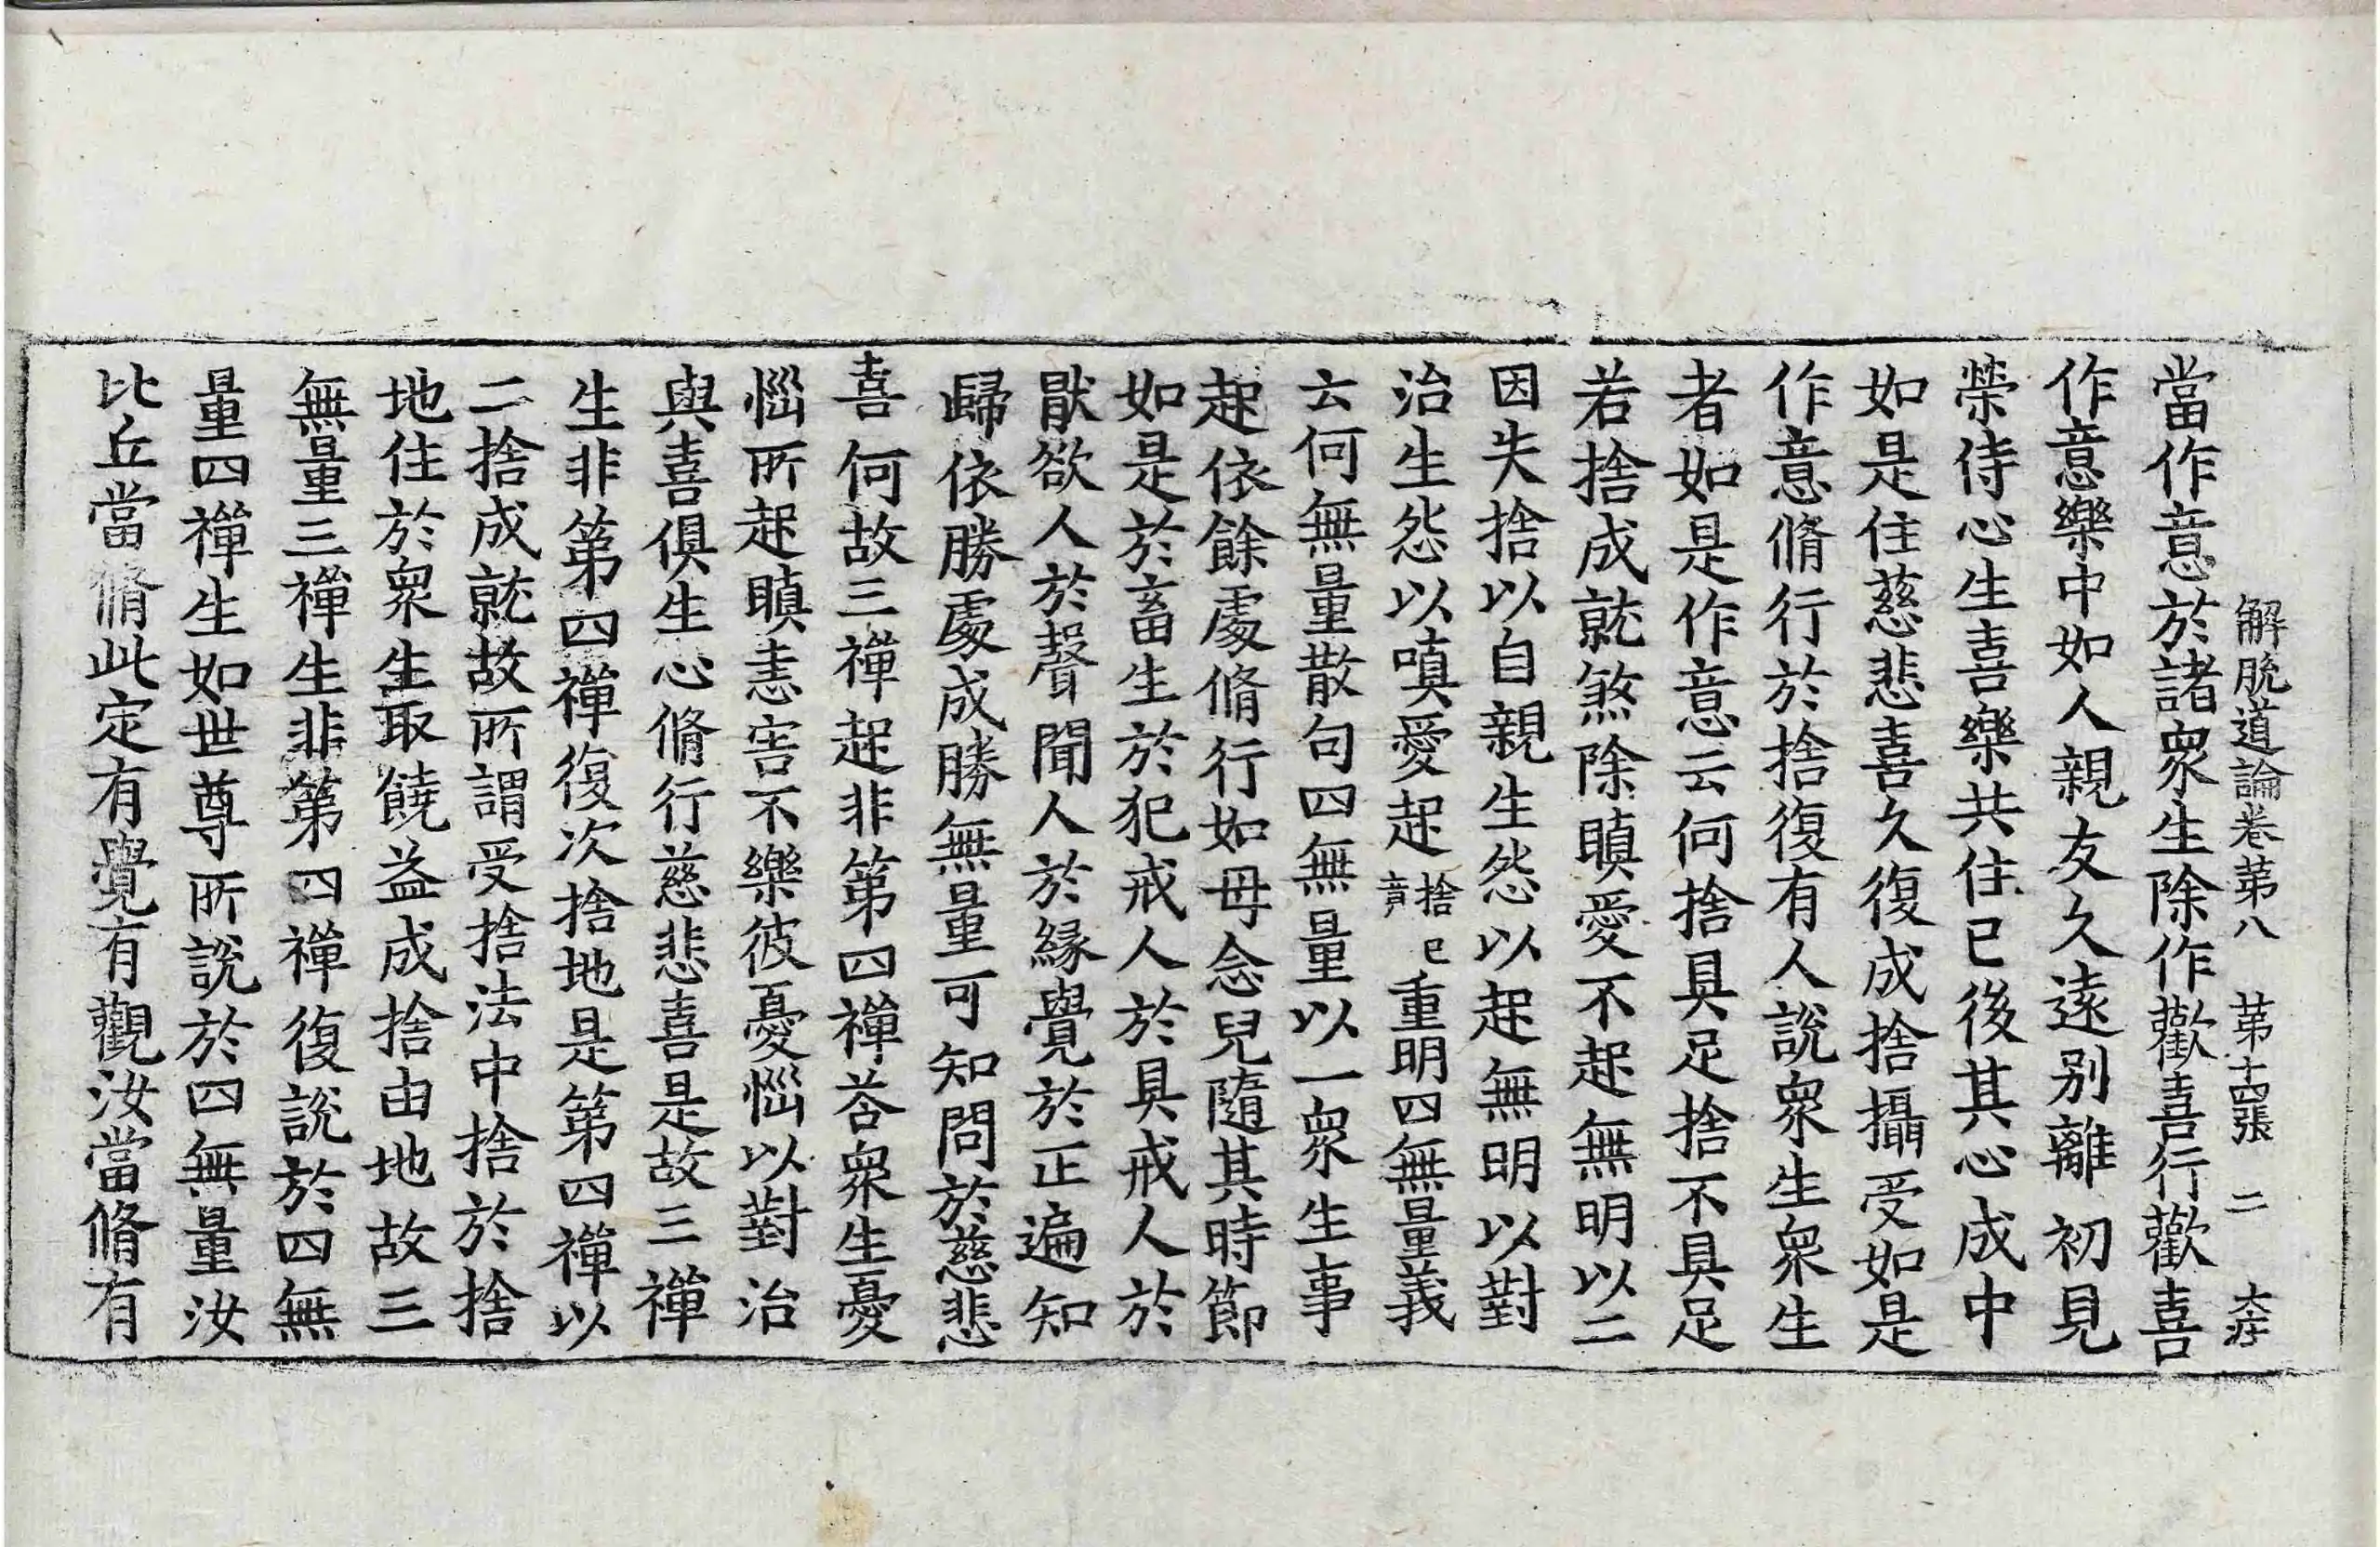 解脫道論卷第八 第十四張 二 大庄
當作意於諸衆生除作歡喜行歡喜
作意樂中如人親友久遠別離初見
榮侍心生喜樂共住已後其心成中
如是住慈悲喜久復成捨攝受如是
作意脩行於捨復有人說衆生衆生
者如是作意云何捨具足捨不具足
若捨成就煞除瞋愛不起無明以二
因失捨以自親生怨以起無明以對
治生怨以嗔愛起捨已竟重明四無量義
云何無量散句四無量以一衆生事
起依餘處脩行如母念兒隨其時節
如是於畜生於犯戒人於具戒人於
猒欲人於聲聞人於緣覺於正遍知
歸依勝處成勝無量可知問於慈悲
喜何故三禪起非第四禪荅衆生憂
惱所起瞋恚害不樂彼憂惱以對治
與喜俱生心脩行慈悲喜是故三禪
生非第四禪復次捨地是第四禪以
二捨成就故所謂受捨法中捨於捨
地住於衆生取饒益成捨由地故三
無量三禪生非第四禪復說於四無
量四禪生如世尊所說於四無量汝
比丘當脩此定有覺有觀汝當脩有